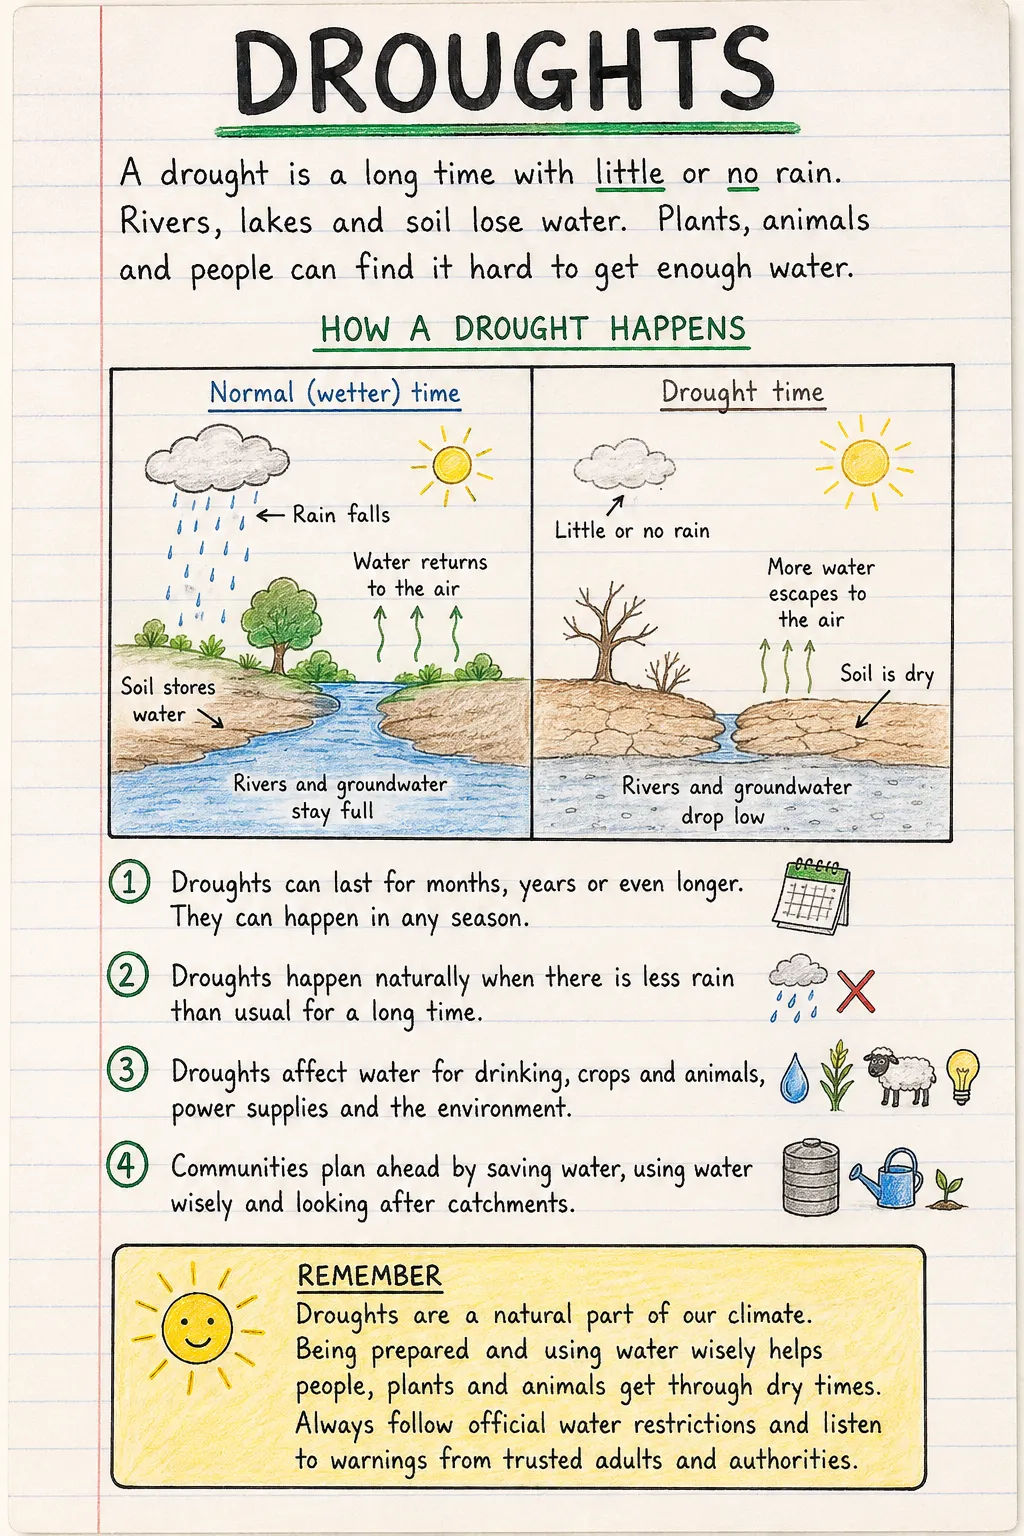 DROUGHTS
A drought is a long time with little or no rain.
Rivers, lakes and soil lose water. Plants, animals
and people can find it hard to get enough water.
HOW A DROUGHT HAPPENS
Normal (wetter) time
Rain falls
Water returns
to the air
Soil stores
water
Rivers and groundwater
stay full
Drought time
Little or no rain
More water
escapes to
the air
Soil is dry
Rivers and groundwater
drop low
1 Droughts can last for months, years or even longer.
They can happen in any season.
2 Droughts happen naturally when there is less rain
than usual for a long time.
3 Droughts affect water for drinking, crops and animals,
power supplies and the environment.
4 Communities plan ahead by saving water, using water
wisely and looking after catchments.
REMEMBER
Droughts are a natural part of our climate.
Being prepared and using water wisely helps
people, plants and animals get through dry times.
Always follow official water restrictions and listen
to warnings from trusted adults and authorities.